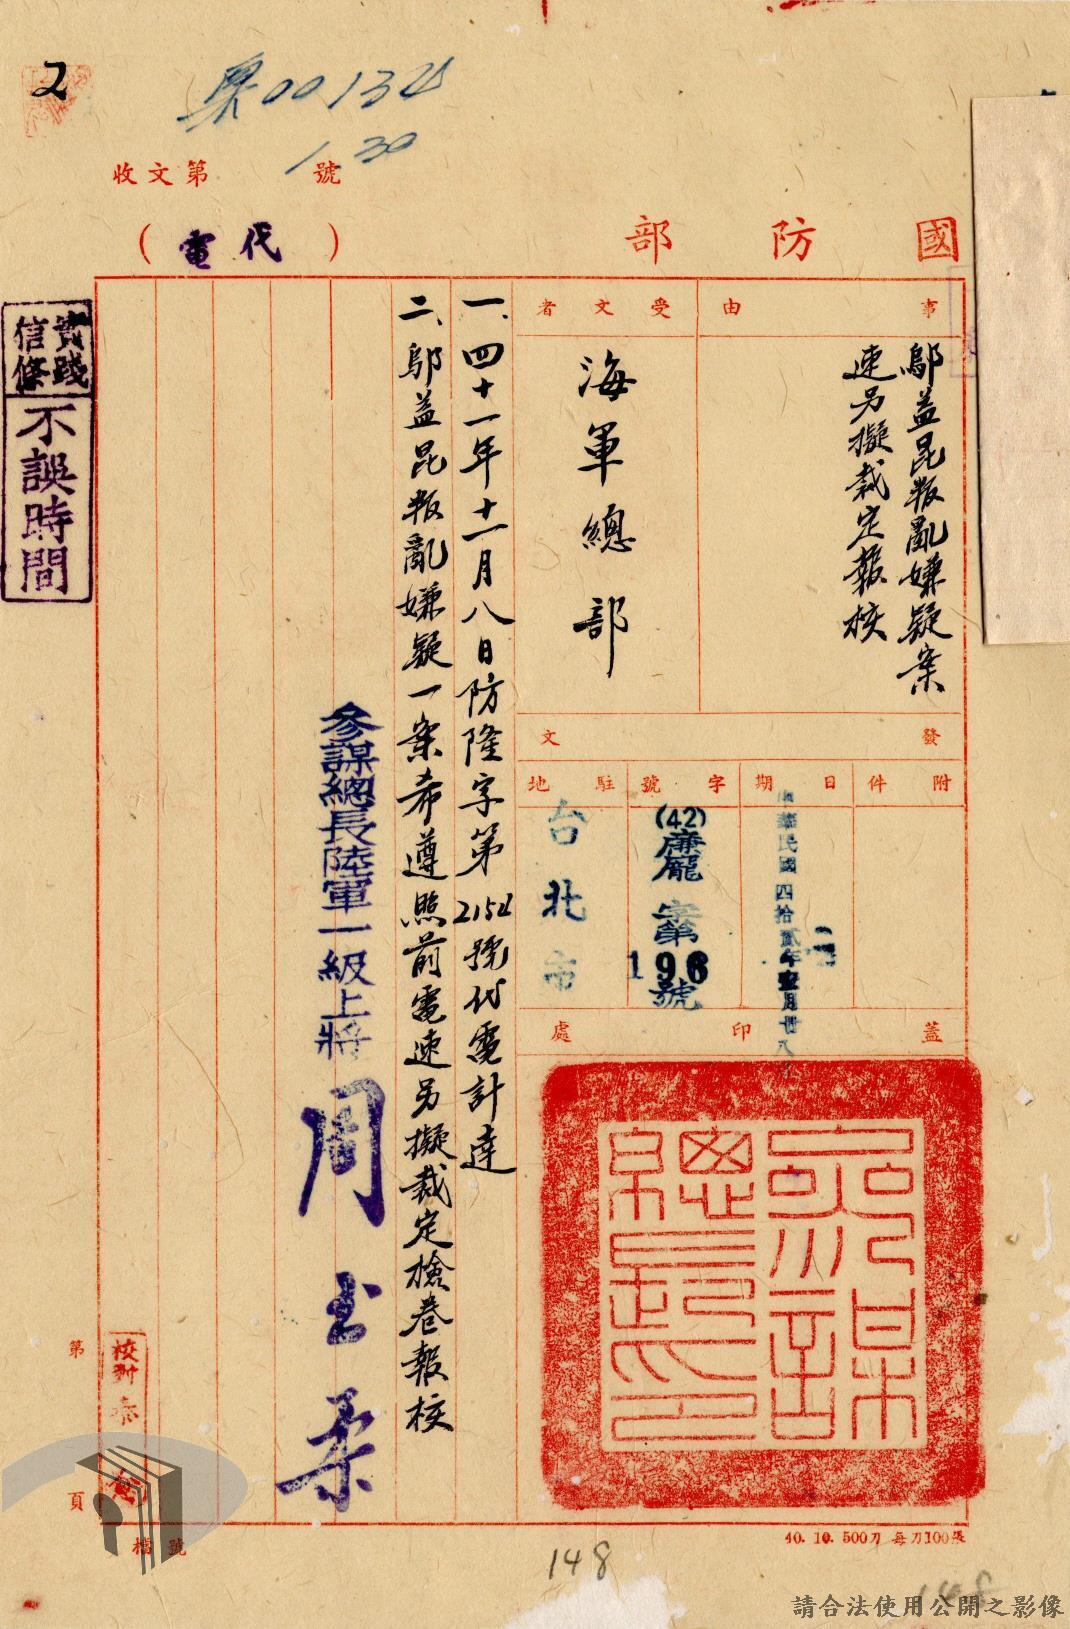 2
收文第 號
130
國防部
(代電)
事由
鄔益昆叛亂嫌疑案
速另擬裁定報核
受文者
海軍總部
發文
附件
日期
中華民國四拾貳年壹月廿八日
字號
(42)廉龐字第
196號
駐地
台北市
蓋印處
參謀總長印
一、四十一年十一月八日防隆字第2154號代電計達
二、鄔益昆叛亂嫌疑一案希遵照前電速另擬裁定檢卷報核
參謀總長陸軍一級上將周至柔
實踐
信條
不誤時間
校對
第 頁
檔號
40. 10. 500刀 每刀100張
148
148
請合法使用公開之影像